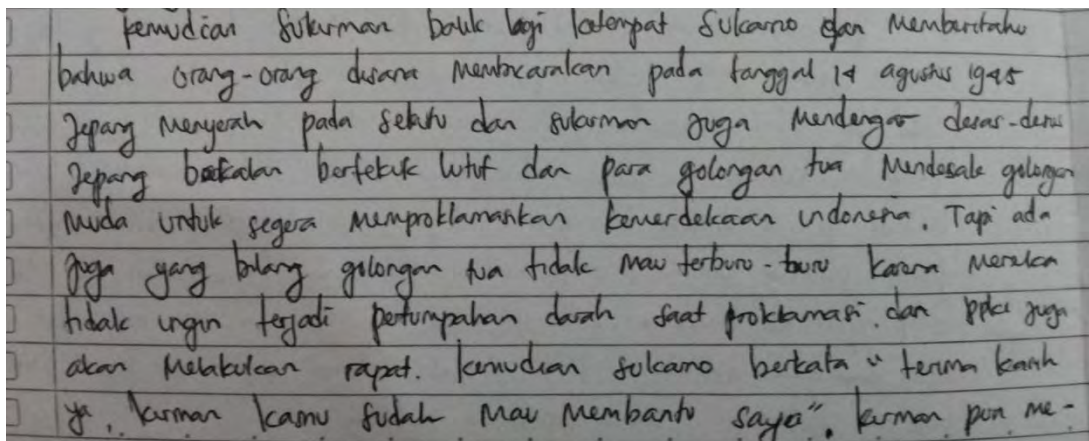 kemudian Sukarman balik lagi ketempat Sukarno dan Memberitahu
bahwa orang-orang disana Membicarakan pada tanggal 14 agustus 1945
Jepang Menyerah pada Sekutu dan sukarman juga Mendengar desas-desus
Jepang bakalan bertekuk lutut dan para golongan tua Mendesak golongan
Muda untuk segera Memproklamasikan kemerdekaan indonesia. Tapi ada
juga yang bilang golongan tua tidak Mau terburu-buru karena Mereka
tidak ingin terjadi pertumpahan darah saat proklamasi. dan ppki juga
akan Melakukan rapat. kemudian sukarno berkata "terima kasih
ya, karman kamu sudah Mau Membantu saya". karman pun me-